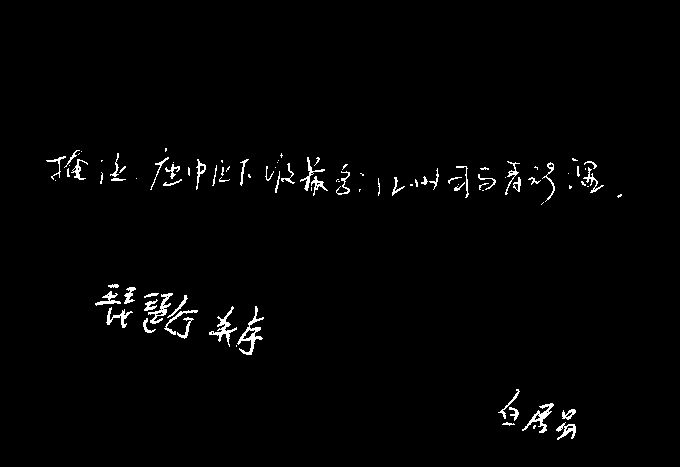 掩泣. 座中泣下谁最多? 江州司马青衫湿.
琵琶行 并序
白居易